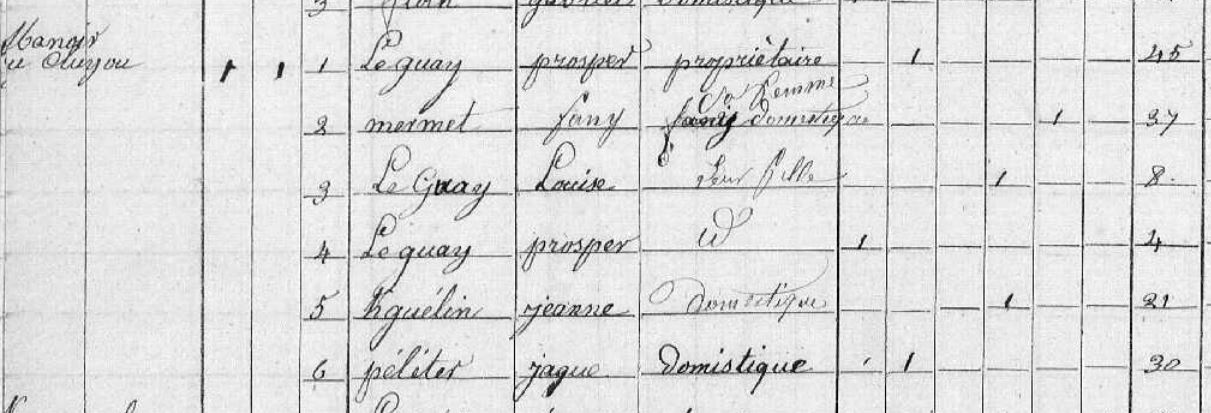 3 gabriel Domistique
Manoir
1 1 1 Le guay prosper propriétaire 1 45
Sa femme
2 mermet fany domestique 1 37
3 Le Guay Louise Leur fille 1 8
4 Le guay prosper id 1 4
5 Kguélin jeanne Domestique 1 21
6 péléter jaque Domistique 1 30